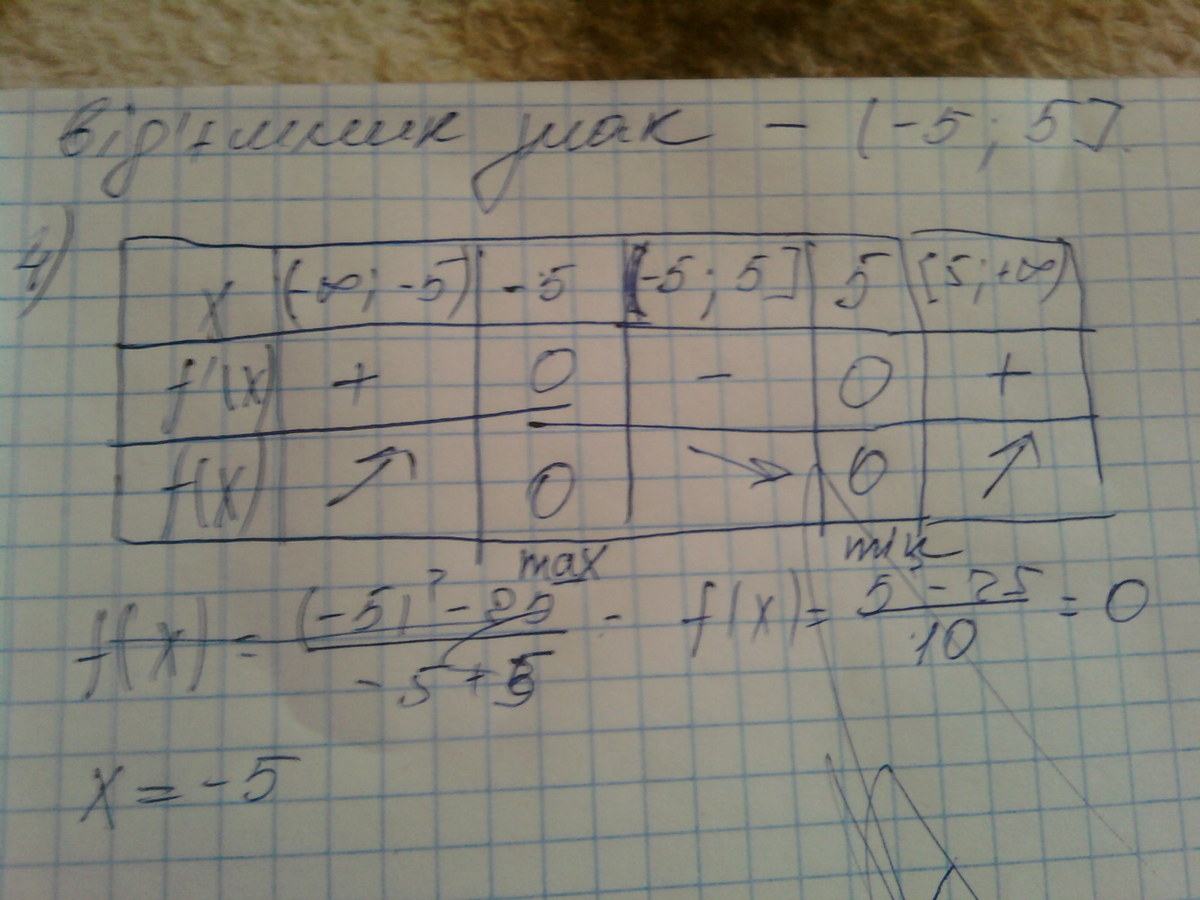 від'ємник знак - (-5; 5]
4)
x (-∞; -5) -5 [-5; 5] 5 [5; +∞)
f'(x) + 0 - 0 +
f(x) ↗ 0 ↘ 0 ↗
max min
f(x) = ((-5)² - 25)/(-5+5) - f(x) = (5² - 25)/10 = 0
x = -5